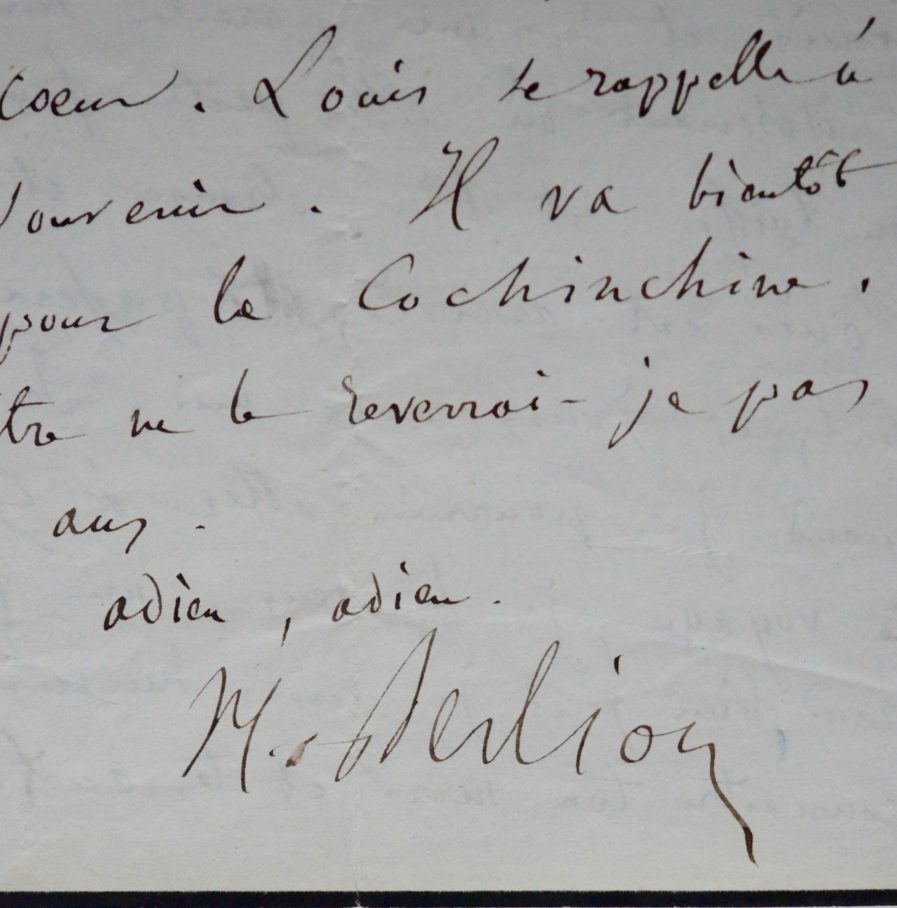 coeur. Louis se rappelle à
souvenir. Il va bientôt
pour la Cochinchine.
tre ne le reverrai-je pas
ans.
adieu, adieu.
H. Berlioz